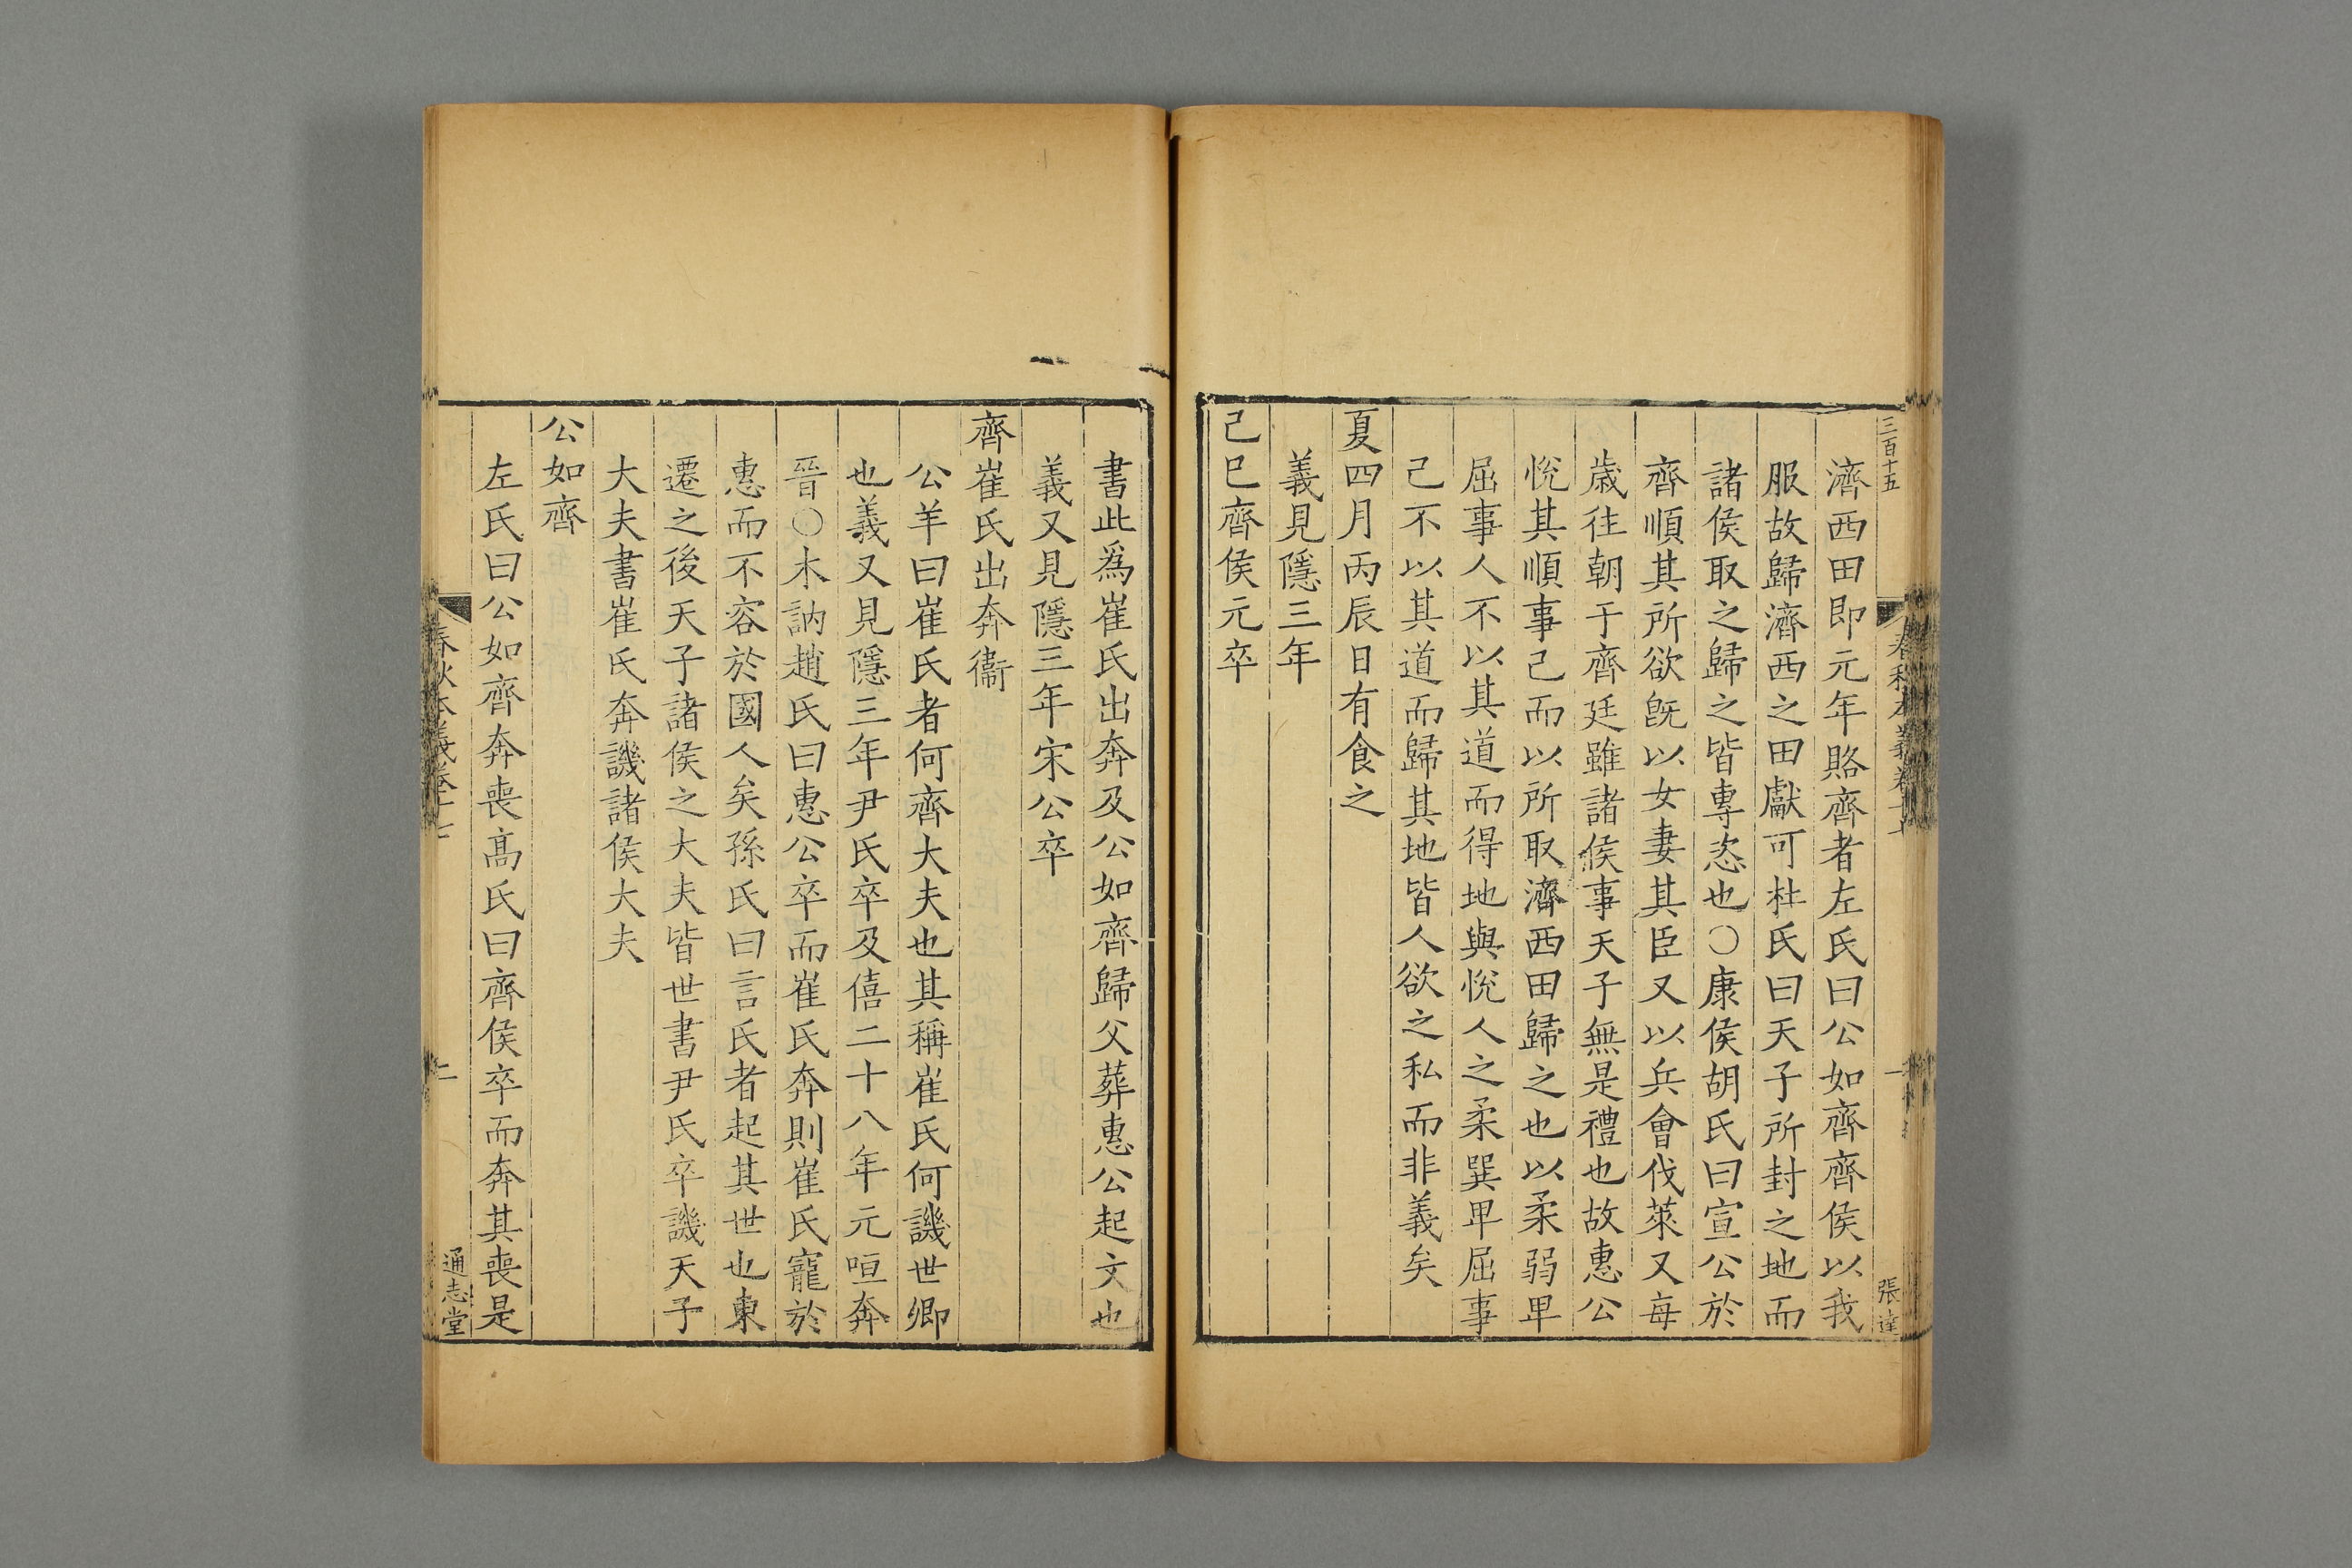 三百十五
張達
濟西田即元年賂齊者左氏曰公如齊齊侯以我
服故歸濟西之田獻可杜氏曰天子所封之地而
諸侯取之歸之皆專恣也〇康侯胡氏曰宣公於
齊順其所欲旣以女妻其臣又以兵會伐萊又每
歲往朝于齊廷雖諸侯事天子無是禮也故惠公
悅其順事己而以所取濟西田歸之也以柔弱卑
屈事人不以其道而得地與悅人之柔巽卑屈事
己不以其道而歸其地皆人欲之私而非義矣
夏四月丙辰日有食之
義見隱三年
己巳齊侯元卒
書此爲崔氏出奔及公如齊歸父葬惠公起文也
義又見隱三年宋公卒
齊崔氏出奔衞
公羊曰崔氏者何齊大夫也其稱崔氏何譏世卿
也義又見隱三年尹氏卒及僖二十八年元咺奔
晉〇木訥趙氏曰惠公卒而崔氏奔則崔氏寵於
惠而不容於國人矣孫氏曰言氏者起其世也東
遷之後天子諸侯之大夫皆世書尹氏卒譏天子
大夫書崔氏奔譏諸侯大夫
公如齊
左氏曰公如齊奔喪髙氏曰齊侯卒而奔其喪是
春秋本義卷十七
二
通志堂